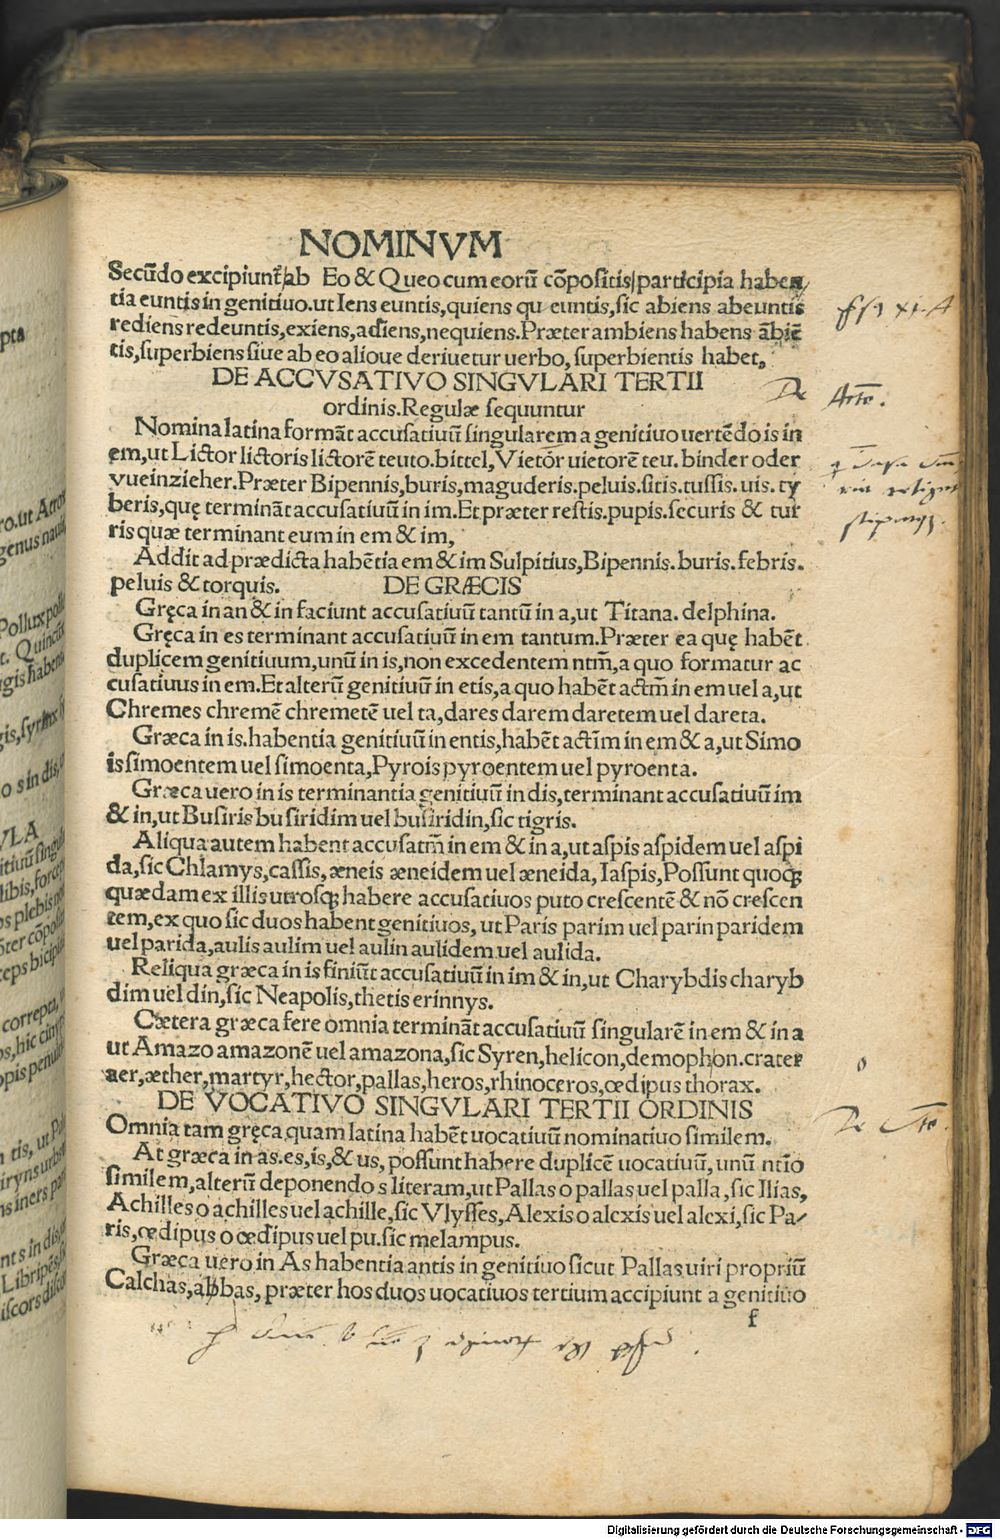 NOMINVM
Secūdo excipiunt̄ ab Eo & Queo cum eorū cōpositis participia haben
tia euntis in genitiuo.ut Iens euntis,quiens qu euntis,sic abiens abeuntis
rediens redeuntis,exiens,adiens,nequiens.Præter ambiens habens ābiē
tis,superbiens siue ab eo alioue deriuetur uerbo, superbientis habet.
DE ACCVSATIVO SINGVLARI TERTII
ordinis.Regulæ sequuntur
Nomina latina formāt accusatiuū singularem a genitiuo uertēdo is in
em,ut Lictor lictoris lictorē teuto.bittel,Vietōr uietorē teu. binder oder
vueinzieher.Præter Bipennis,buris,maguderis.peluis.sitis.tussis.uis.ty
beris,quę termināt accusatiuū in im.Et præter restis.pupis.securis & tur
ris quæ terminant eum in em & im,
Addit ad prædicta habētia em & im Sulpitius,Bipennis.buris.febris.
peluis & torquis. DE GRÆCIS
Gręca in an & in faciunt accusatiuū tantū in a,ut Titana. delphina.
Gręca in es terminant accusatiuū in em tantum.Præter ea quę habēt
duplicem genitiuum,unū in is,non excedentem ntm̄,a quo formatur ac
cusatiuus in em.Et alterū genitiuū in etis,a quo habēt actm̄ in em uel a,ut
Chremes chremē chremetē uel ta,dares darem daretem uel dareta.
Græca in is.habentia genitiuū in entis,habēt actīm in em & a,ut Simo
is simoentem uel simoenta,Pyrois pyroentem uel pyroenta.
Græca uero in is terminantia genitiuū in dis,terminant accusatiuū im
& in,ut Busiris busiridim uel busiridin,sic tigris.
Aliqua autem habent accusatm̄ in em & in a,ut aspis aspidem uel aspi
da,sic Chlamys,cassis,æneis æneidem uel æneida, Iaspis,Possunt quoqꝫ
quædam ex illis utrosqꝫ habere accusatiuos puto crescentē & nō crescen
tem,ex quo sic duos habent genitiuos, ut Paris parim uel parin paridem
uel parida,aulis aulim uel aulin aulidem uel aulida.
Reliqua græca in is finiūt accusatiuū in im & in,ut Charybdis charyb
dim uel din,sic Neapolis,thetis erinnys.
Cætera græca fere omnia termināt accusatiuū singularē in em & in a
ut Amazo amazonē uel amazona,sic Syren,helicon,demophon.crater
aer,æther,martyr,hector,pallas,heros,rhinoceros,œdipus thorax.
DE VOCATIVO SINGVLARI TERTII ORDINIS
Omnia tam gręca quam latina habēt uocatiuū nominatiuo similem.
At græca in as.es,is,& us, possunt habere duplicē uocatiuū, unū ntīo
similem,alterū deponendo s literam,ut Pallas o pallas uel palla, sic Ilias,
Achilles o achilles uel achille,sic Vlysses,Alexis o alexis uel alexi,sic Pa/
ris,œdipus o œdipus uel pu.sic melampus.
Græca uero in As habentia antis in genitiuo sicut Pallas uiri propriū
Calchas,abbas, præter hos duos uocatiuos tertium accipiunt a genitiuo
f
Digitalisierung gefördert durch die Deutsche Forschungsgemeinschaft - DFG